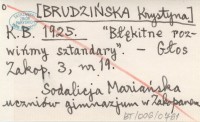 [BRUDZIŃSKA Krystyna]
K.B. 1925. "Błękitne roz-
wińmy sztandary". – Głos
Zakop, 3, nr 19.
Sodalicja Mariańska
uczniów gimnazjum w Zakopanem